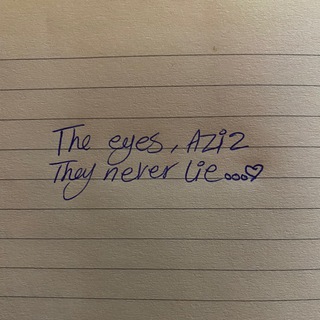 The eyes, Aziz
They never lie...♡